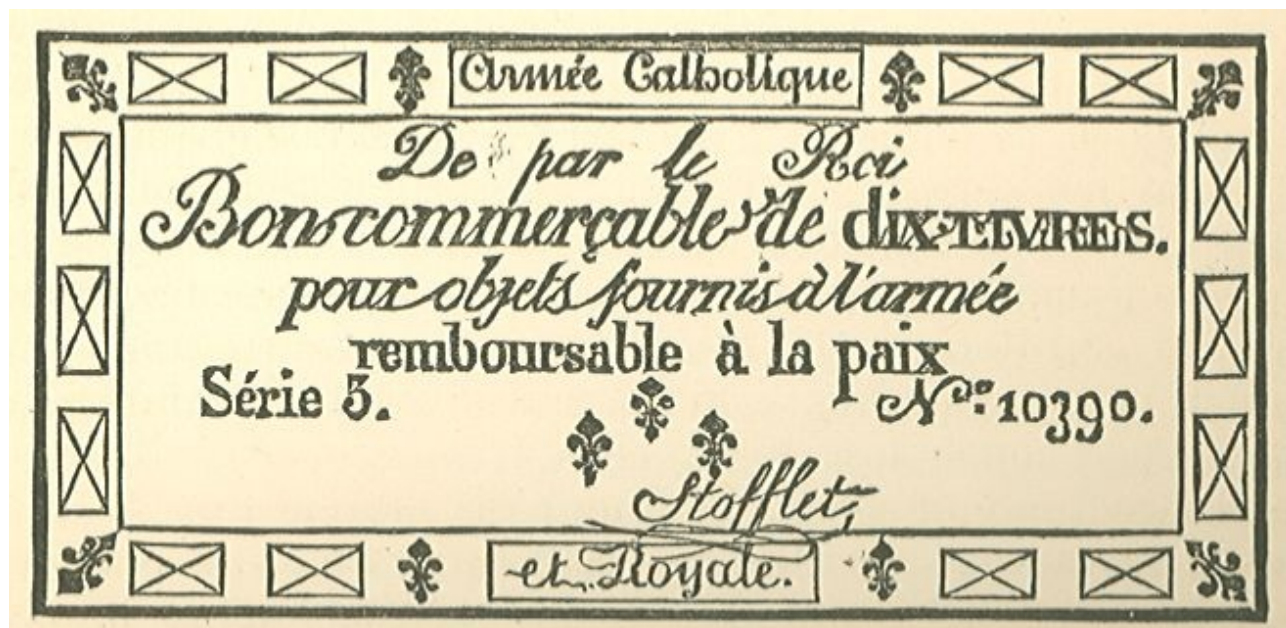 Armée Catholique
De par le Roi
Bon commerçable de dix LIVRES.
pour objets fournis à l'armée
remboursable à la paix
Série 3. Nº. 10390.
Stofflet
et Royale.